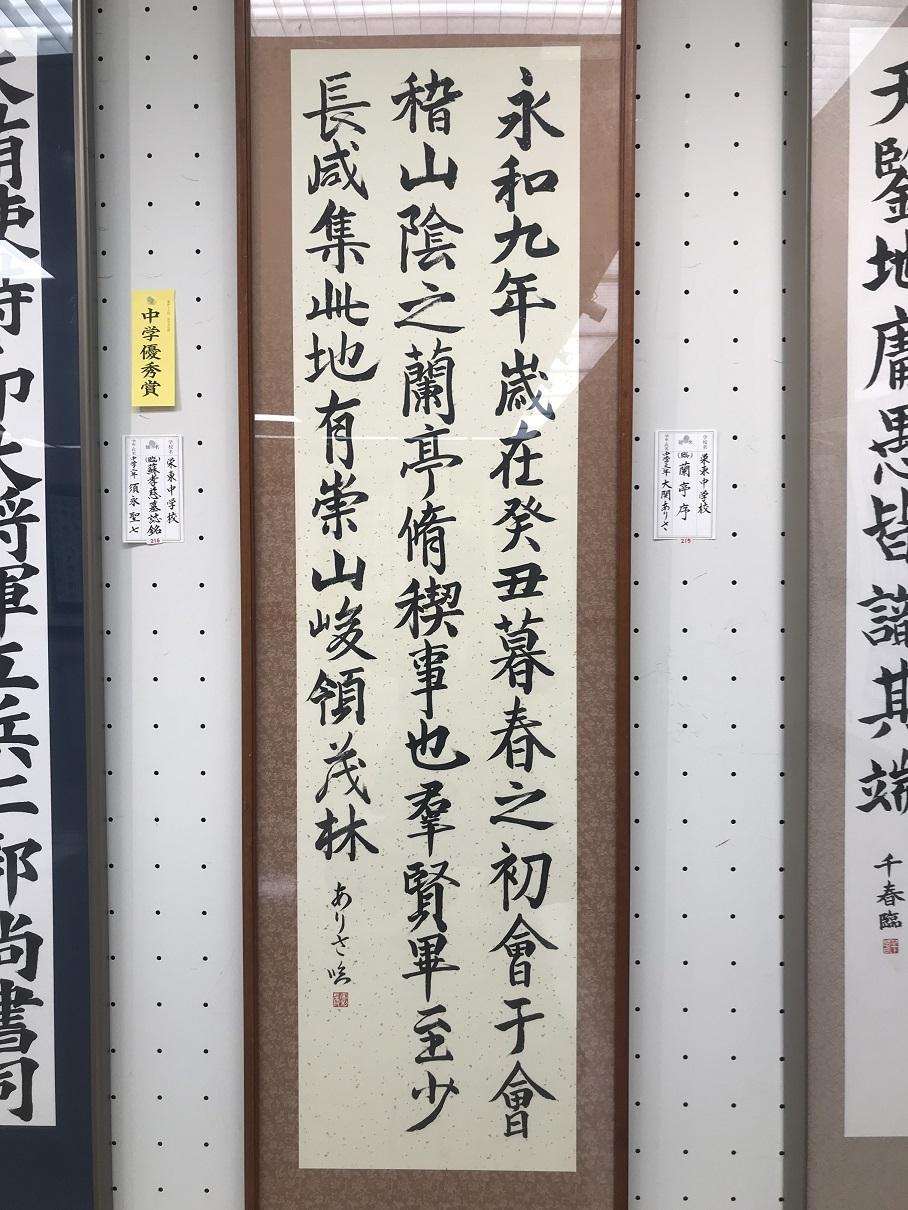 永和九年嵗在癸丑暮春之初會于會
稽山陰之蘭亭脩稧事也羣賢畢至少
長咸集此地有崇山峻領茂林
ありさ
学校名
栄東中学校
(臨)蘭亭序
大関ありさ
219
中学優秀賞
学校名
栄東中学校
(臨)蘇孝慈墓誌銘
須永聖七
216
天鑒地廣愚皆諳其端
千春臨
使持節大将軍工兵二部尚書司